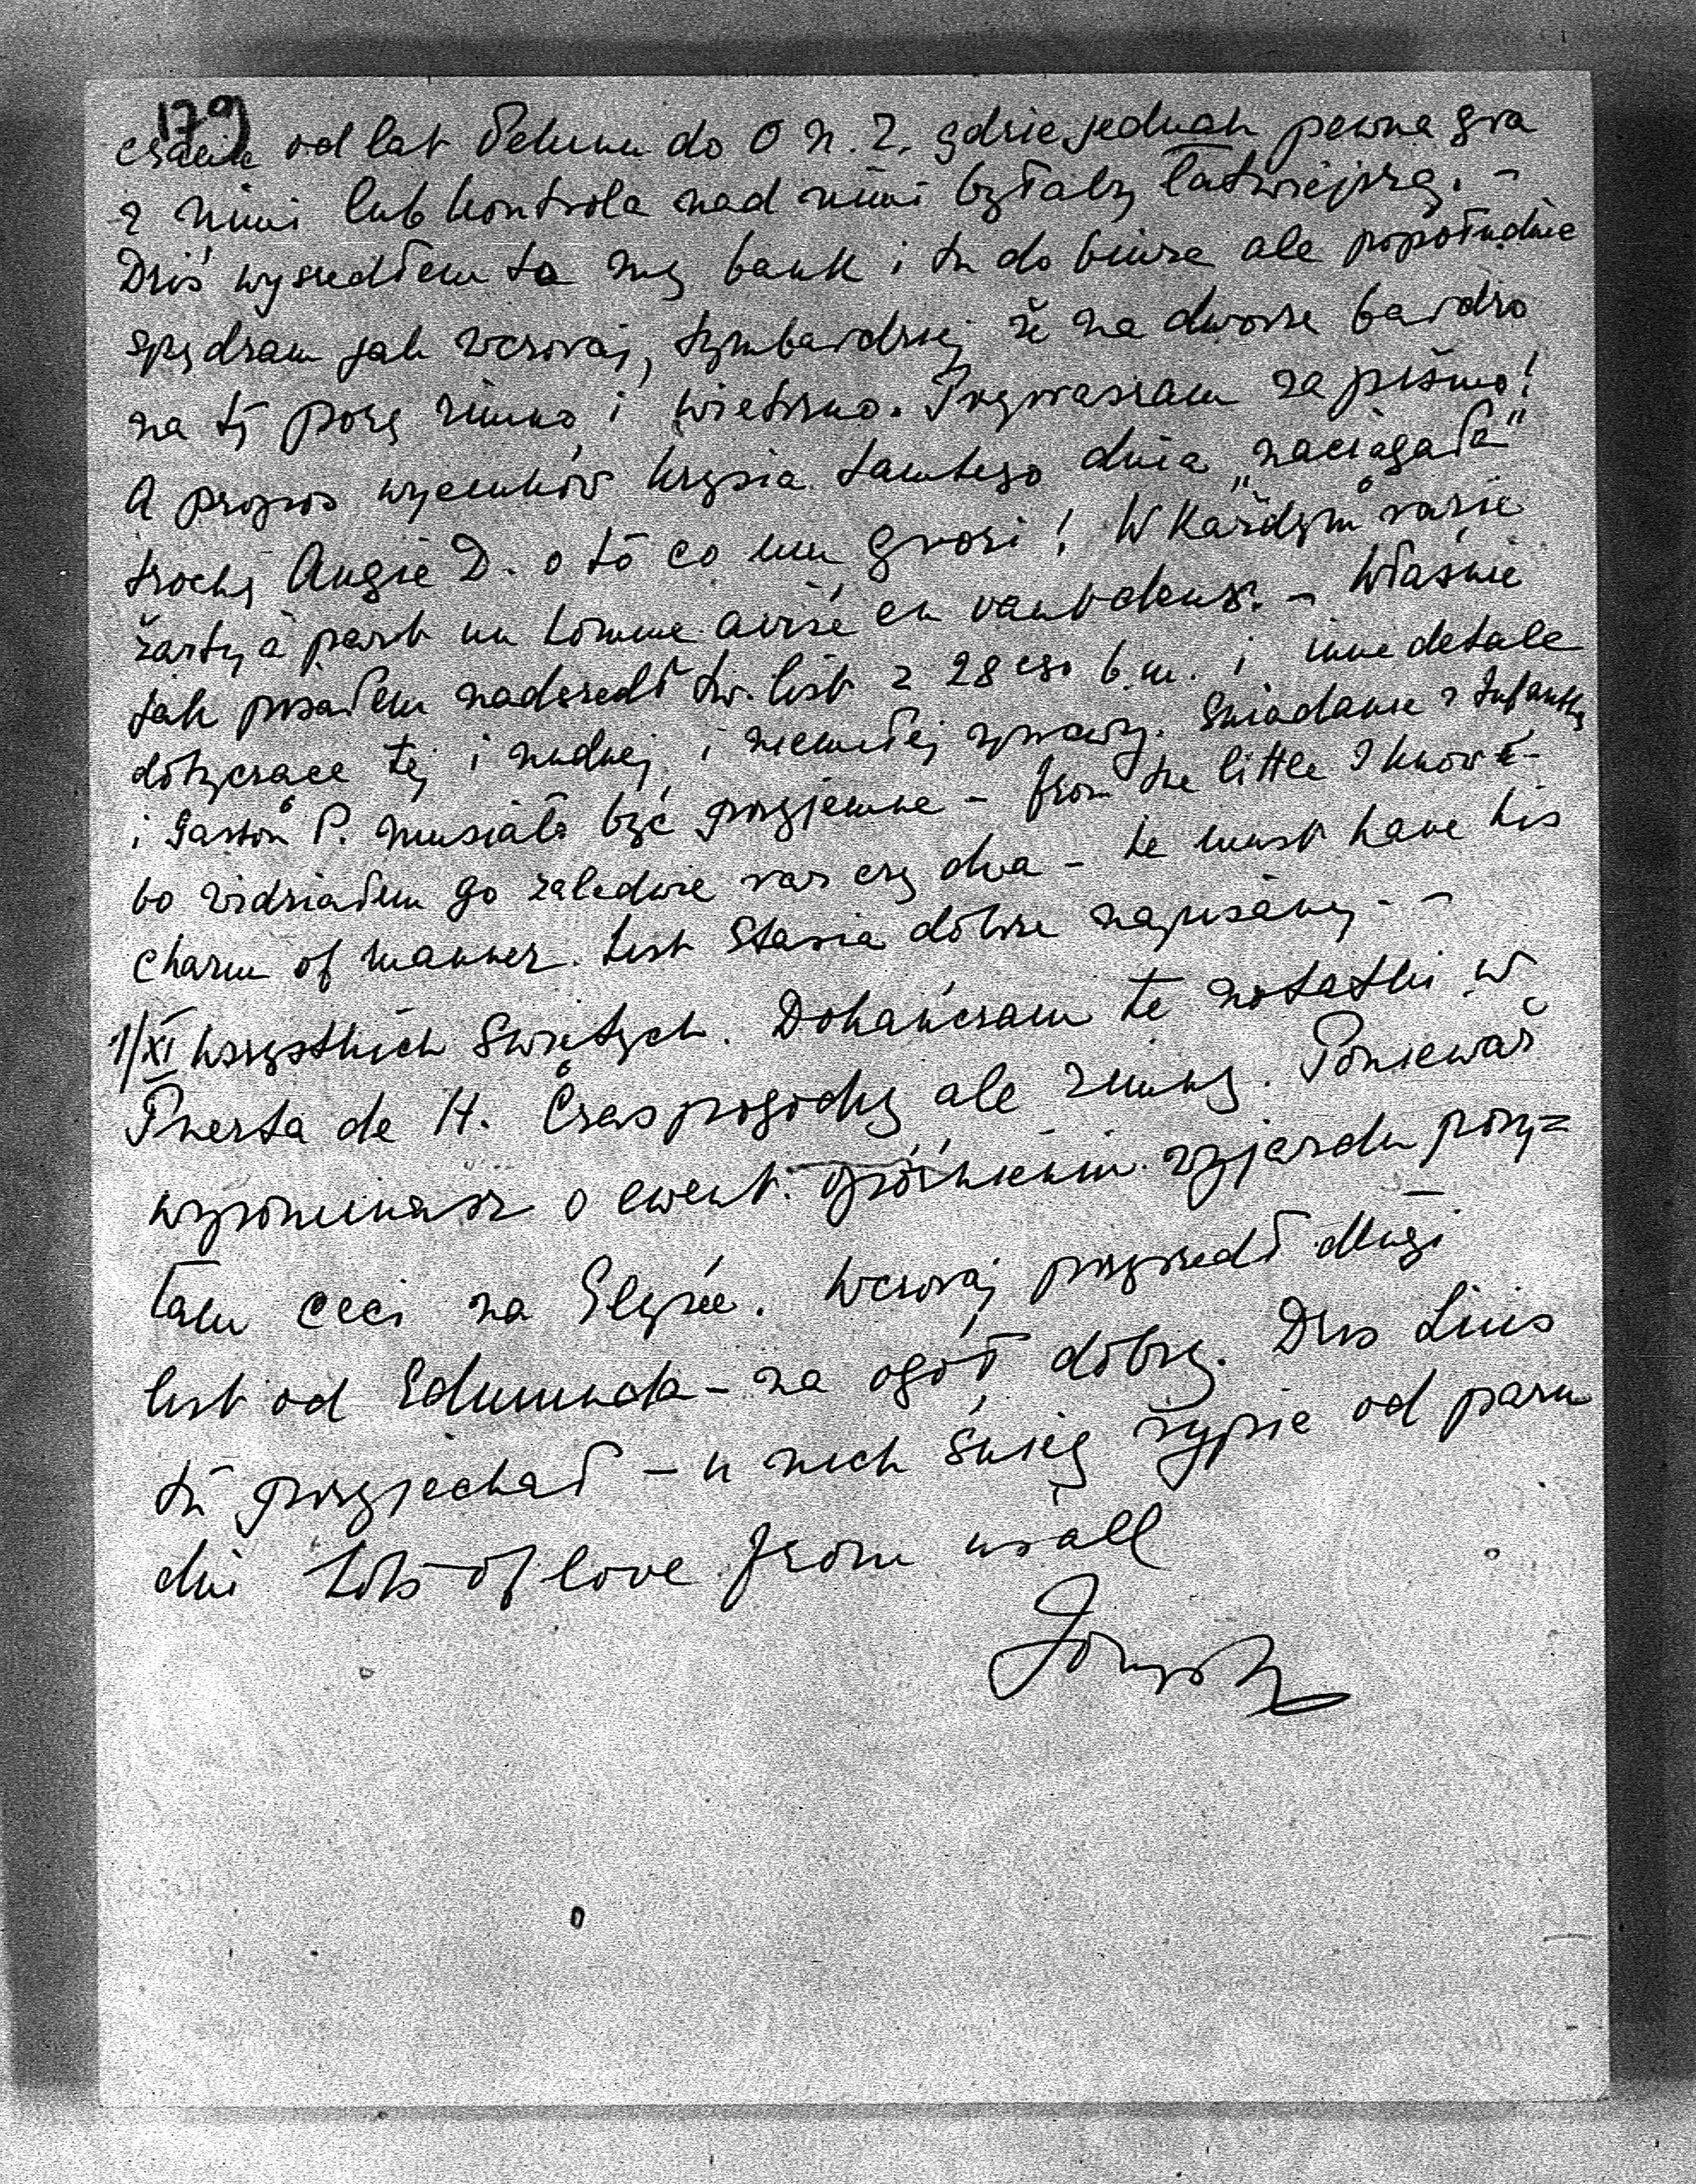 179
od lat do O.N.Z. gdzie jednak pewna gra
z nimi lub kontrola nad nimi byłaby łatwiejszą. –
Dziś wyszedłem to my bank i tu do biura ale popołudnie
spędzam jak wczoraj, tymbardziej że na dworze bardzo
na tę porę zimno i wietrzno. Przepraszam za pismo!
A propos wycinków Krysia tamtego dnia „naciągała"
trochę Angie D. o to co mu grozi! W każdym razie
żarty à part un homme avisé en vaut deux. – Właśnie
jak pisałem nadszedł tw. list z 28ego b.m. i inne detale
dotyczące tej i nudnej i niemiłej sprawy. Śniadanie z Infantką
i Gaston P. musiało być przyjemne – from the little I know –
bo widziałem go zaledwie raz czy dwa – he must have his
charm of manner. List Stasia dobrze napisany. –
1/XI Wszystkich Świętych. Dokańczam te notatki w
Puerta de H. Czas pogodny ale zimny. Ponieważ
wspominasz o ewent. opóźnieniu wyjazdu posy=
łam Ceci na Elysée. Wczoraj przyszedł długi
list od Edmunda – na ogół dobry. Dziś Linis
tu przyjechał – u nich śnieg sypie od paru
dni Lots of love from us all